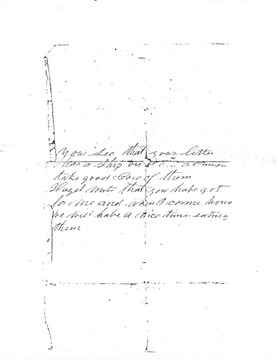 You see that your letter
has a ship on
take good Care of them
Hazel nuts that you have got
for me and when I come home
we will have a nice time eating
them